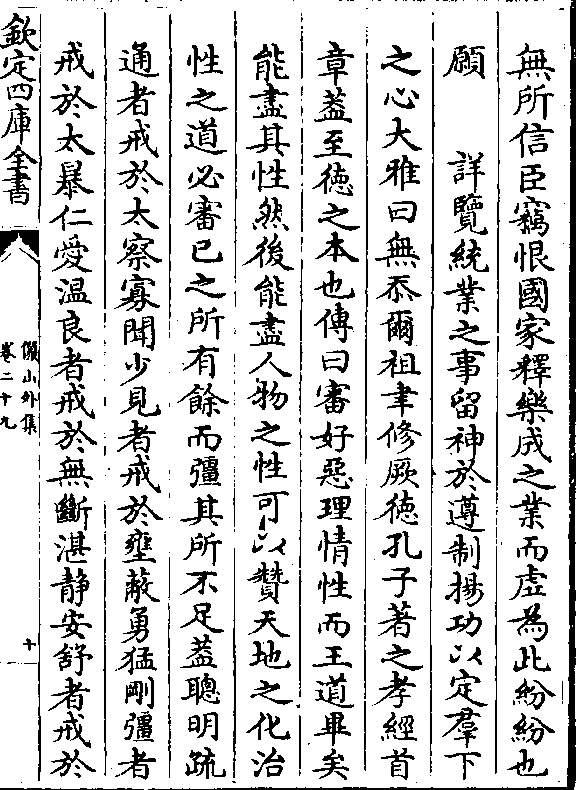 無所信臣竊恨國家釋樂成之業而虛為此紛紛也
願　　詳覽統業之事留神於遵制揚功以定羣下
之心大雅曰無忝爾祖聿修厥徳孔子著之孝經首
章葢至徳之本也傳曰審好惡理情性而王道畢矣
能盡其性然後能盡人物之性可以贊天地之化治
性之道必審已之所有餘而彊其所不足葢聰明疏
通者戒於太察寡聞少見者戒於壅蔽勇猛剛彊者
戒於太暴仁愛温良者戒於無斷湛静安舒者戒於
欽定四庫全書
儼山外集
卷二十九
十